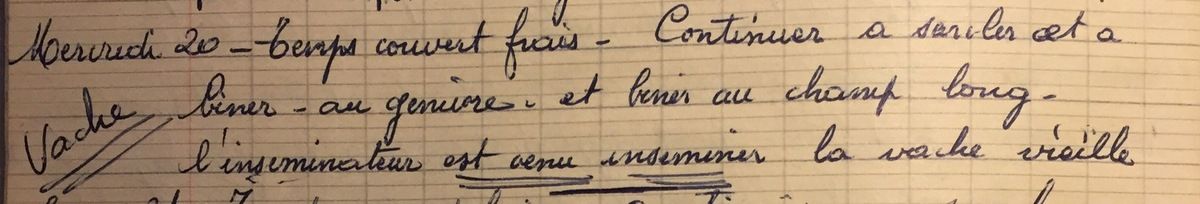 Mercredi 20 - temps couvert frais - Continuer a sarcler et a
Vache biner - au genievre - et biner au champ long -
l'inseminateur est venu inseminer la vache vieille